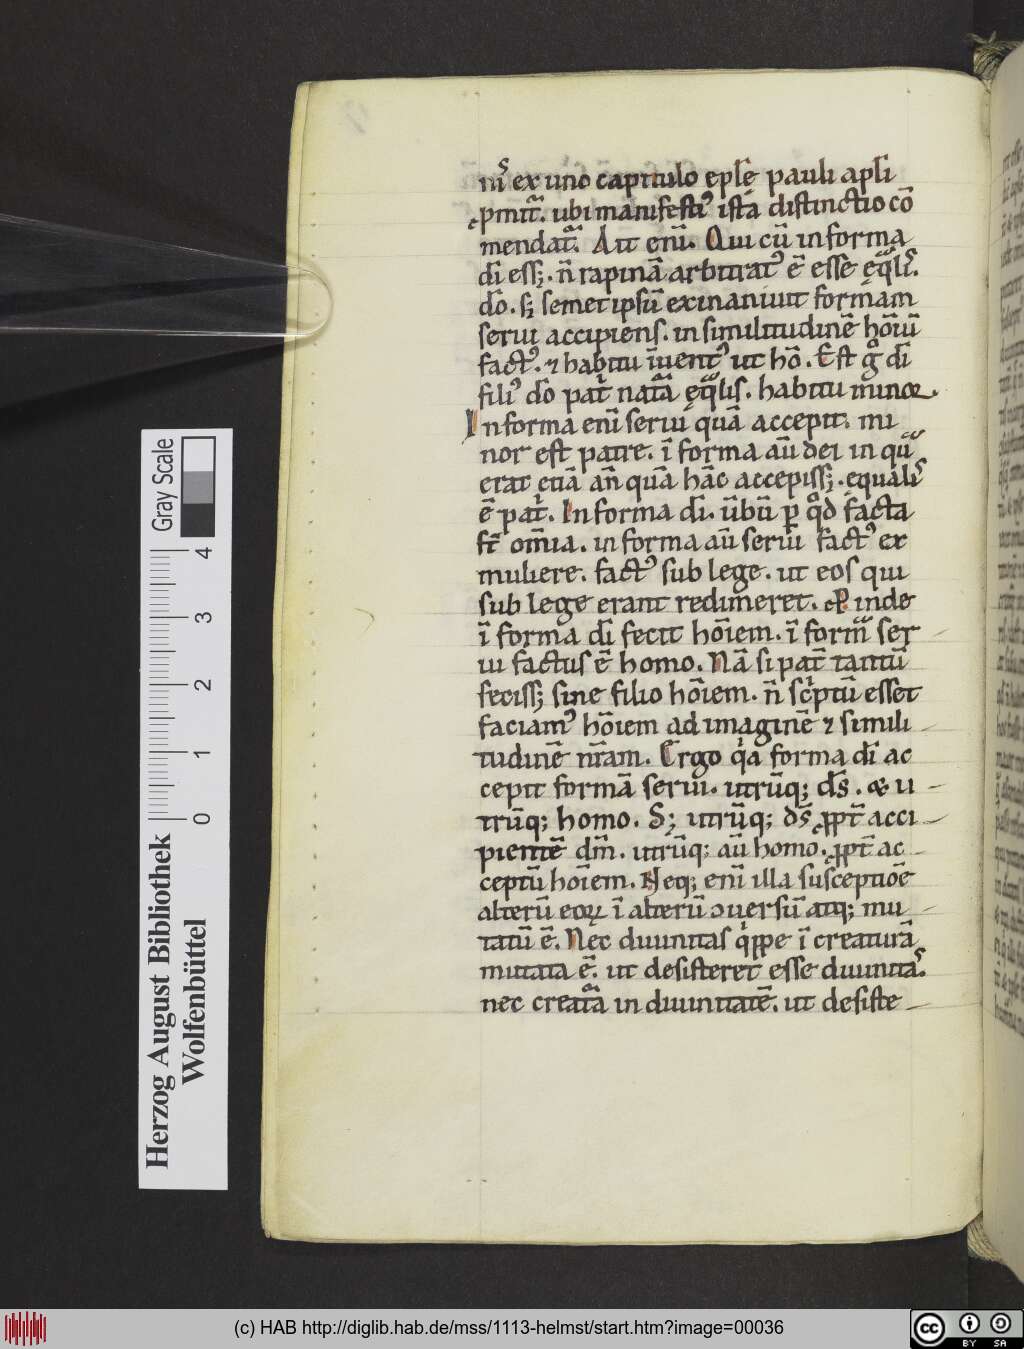 nr̄s ex uno capitulo epłe pauli apłi
ꝓmit̄t. ubi manifestiꝰ ista distinctio cō
mendat᷑. Ait enī. Qui cū in forma
dī ess;. n̄ rapinā arbitratꝰ ē esse ęqͣlis.
dō. s; semetipsū exinaniuit formam
serui accipiens. in similitudinē hoīū
factꝰ. ⁊ habitu īuentꝰ ut hō. Est gͦ dī
filiꝰ dō pat̄ natͣa ęqͣlis. habitu minor.
In forma enī serui quā accepit. mi
nor est patre. ī forma aū dei in quͣ
erat etiā an̄ quā hāc accepiss;. equalis
ē pat̄. In forma dī. ūbū ꝑ qͦd facta
st̄ om̄ia. in forma aū serui factꝰ ex
muliere. factꝰ sub lege. ut eos qui
sub lege erant redimeret. P inde
ī forma dī fecit hoīem. ī formͣ ser
ui factus ē homo. Nā si pat̄ tantū
feciss; sine filio hoīem. n̄ scͥptū esset
faciamꝰ hoīem ad imaginē ⁊ simili
tudinē nr̄am. Ergo qͥa forma dī ac
cepit formā serui. utrūq; ds̄. & u
trūq; homo. S; utrūq; ds̄ ꝓpt̄ acci
pientē dm̄. utrūq; aū homo. ꝓpt̄ ac
ceptū hoīem. Neq; enī illa susceptiōe
alterū eoꝝ ī alterū ↄuersū atq; mu
tatū ē. Nec diuinitas qͥppe ī creaturā
mutata ē. ut desisteret esse diuinitas.
nec creatͣa in diuinitatē. ut desiste
Gray Scale
4
3
2
1
0
Herzog August Bibliothek
Wolfenbüttel
(c) HAB http://diglib.hab.de/mss/1113-helmst/start.htm?image=00036
cc BY SA